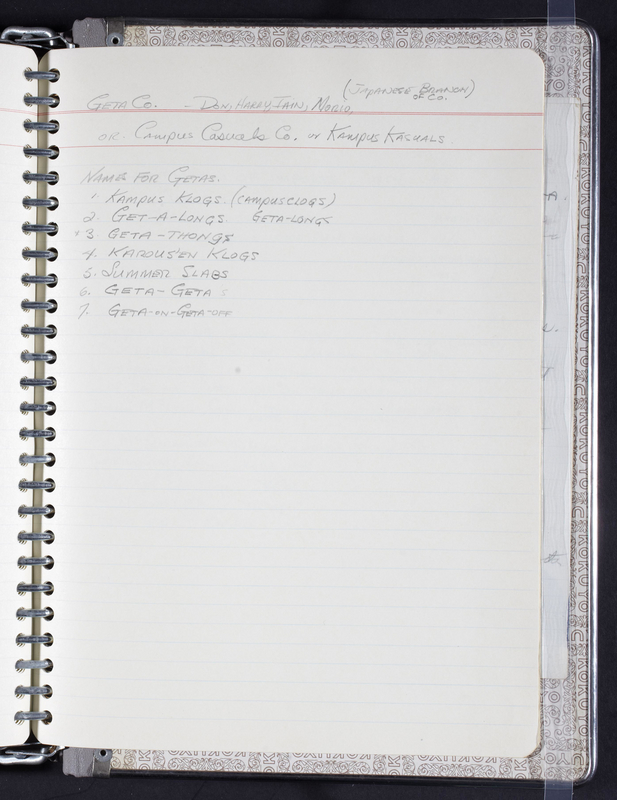 (JAPANESE BRANCH
OF CO.)
GETA CO. - DON, HARRY, IAIN, NORIO,
OR CAMPUS CASUALS CO. or KAMPUS KASUALS
NAMES FOR GETAS.
1 KAMPUS KLOGS. (CAMPUSCLOGS)
2. GET-A-LONGS. GETA-LONGS
3. GETA-THONGS
4. KAROUS'EN KLOGS
5. SUMMER SLABS
6. GETA-GETAS
7. GETA-ON-GETA-OFF
KOKUYO